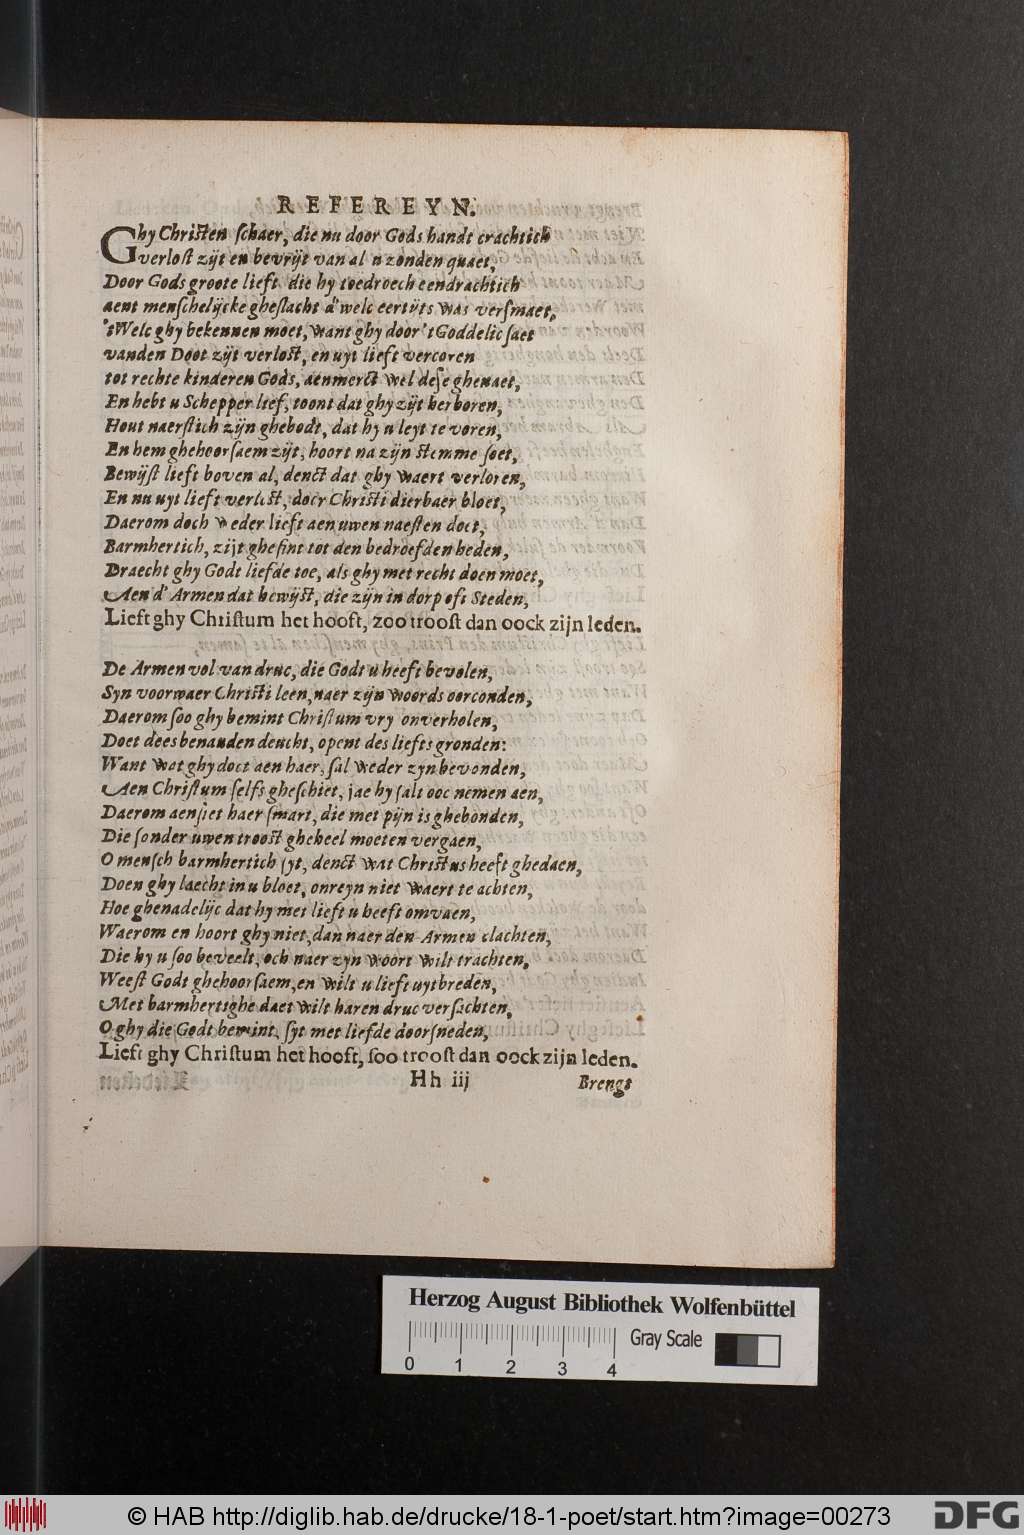 REFEREYN.
Ghy Christen schaer, die nu door Gods handt crachtich
verlost zijt en bevrijt van al u zonden quaet,
Door Gods groote lieft die hy toedroech eendrachtich
aent menschelijcke gheslacht d'welc eertijts was versmaet,
'tWelc ghy bekennen moet, want ghy door 't Goddelic saet
vanden Doot zijt verlost, en uyt lieft vercoren
tot rechte kinderen Gods, aenmerct wel dese ghenaet,
En hebt u Schepper lief, toont dat ghy zijt herboren,
Hout naerstich zijn ghebodt, dat hy u leyt te voren,
En hem ghehoorsaem zijt, hoort na zijn stemme soet,
Bewijst lieft boven al, denct dat ghy waert verloren,
En nu uyt lieft verlost, door Christi dierbaer bloet,
Daerom doch weder lieft aen uwen naesten doet,
Barmhertich, zijt ghesint tot den bedroefden heden,
Draecht ghy Godt liefde toe, als ghy met recht doen moet,
Aen d'Armen dat bewijst, die zijn in dorp oft Steden,
Lieft ghy Christum het hooft, zoo troost dan oock zijn leden.
De Armen vol van druc, die Godt u heeft bevolen,
Syn voorwaer Christi leen, naer zijn woords oorconden,
Daerom soo ghy bemint Christum vry onverholen,
Doet dees benauden deucht, opent des liefts gronden:
Want wat ghy doet aen haer, sal weder zyn bevonden,
Aen Christum selfs gheschiet, jae hy salt ooc nemen aen,
Daerom aensiet haer smart, die met pijn is ghebonden,
Die sonder uwen troost gheheel moeten vergaen,
O mensch barmhertich syt, denct wat Christus heeft ghedaen,
Doen ghy laecht in u bloet, onreyn niet waert te achten,
Hoe ghenadelijc dat hy met lieft u heeft omvaen,
Waerom en hoort ghy niet, dan naer den Armen clachten,
Die hy u soo beveelt, och naer zyn woort wilt trachten,
Weest Godt ghehoorsaem, en wilt u lieft uytbreden,
Met barmhertighe daet wilt haren druc versachten,
O ghy die Godt bemint, syt met liefde doorsneden,
Lieft ghy Christum het hooft, soo troost dan oock zijn leden.
Hh iij Brengt
Herzog August Bibliothek Wolfenbüttel
0 1 2 3 4 Gray Scale
© HAB http://diglib.hab.de/drucke/18-1-poet/start.htm?image=00273 DFG